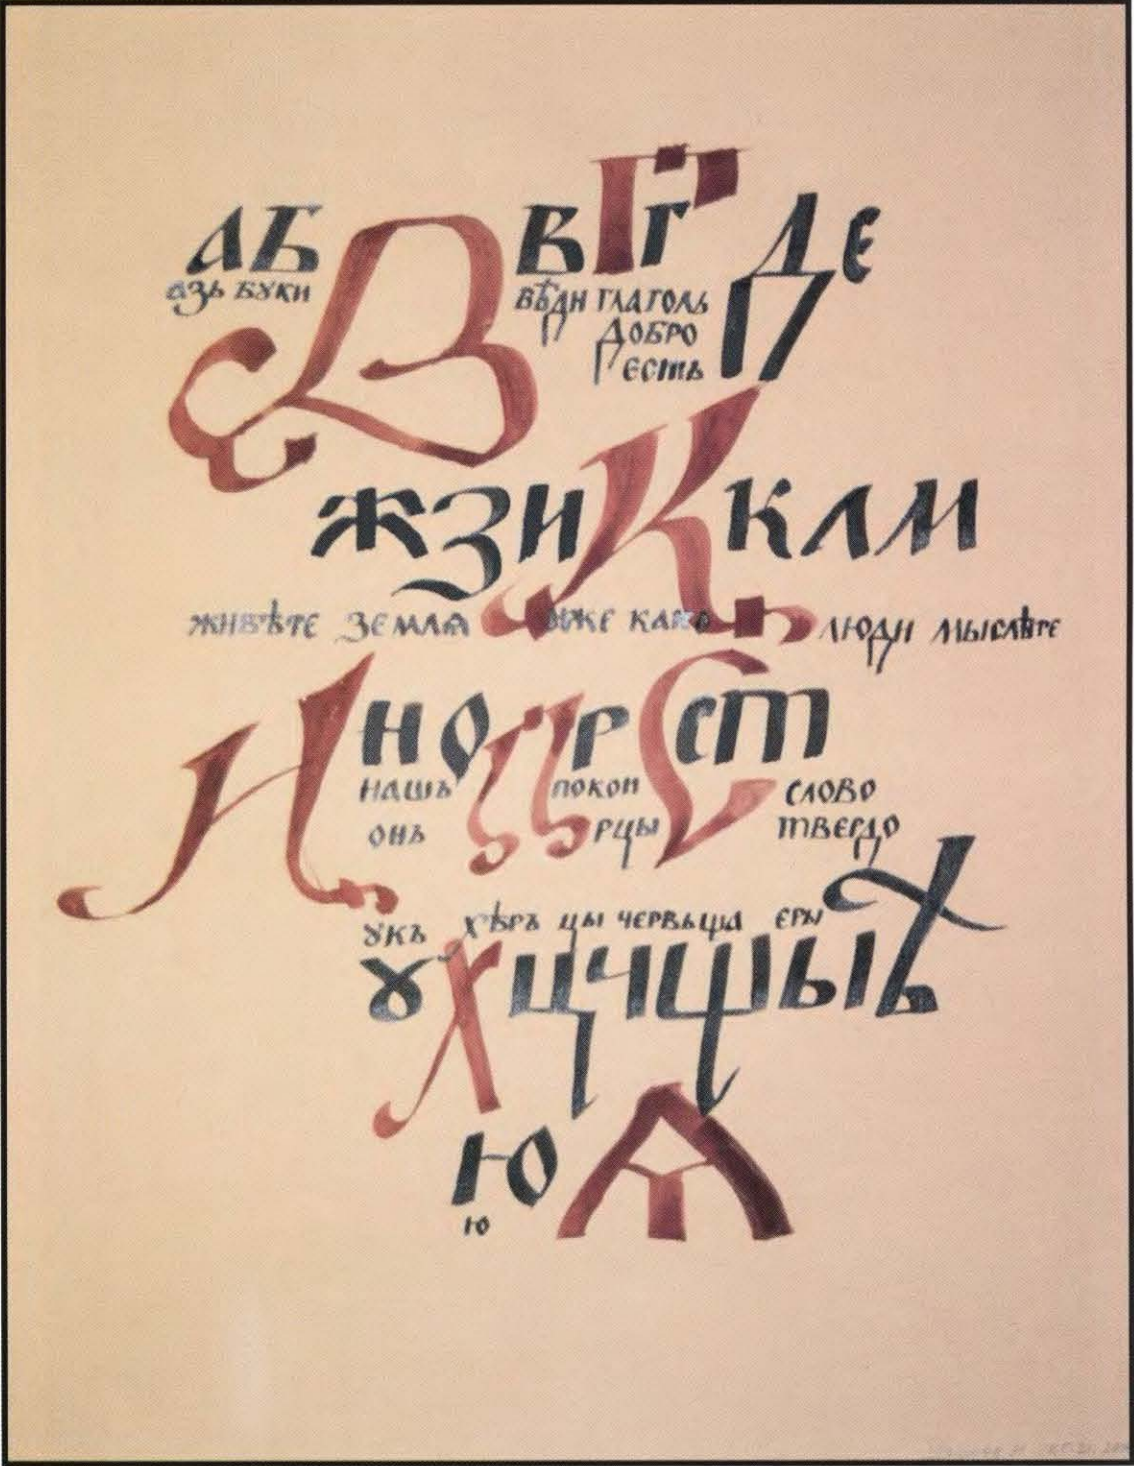 А Б В В Г Г Д Е
азъ буки вѣди глаголь
добро
есть
Ж З И К К Л М
живѣте земля иже како люди мыслѣте
Н Н О П Р С С Т
нашъ покои слово
онъ рцы твердо
укъ хѣръ цы червь ша еры
Ꙋ Х Ц Ч Щ Ы Ѣ
Ю Ѧ
ю